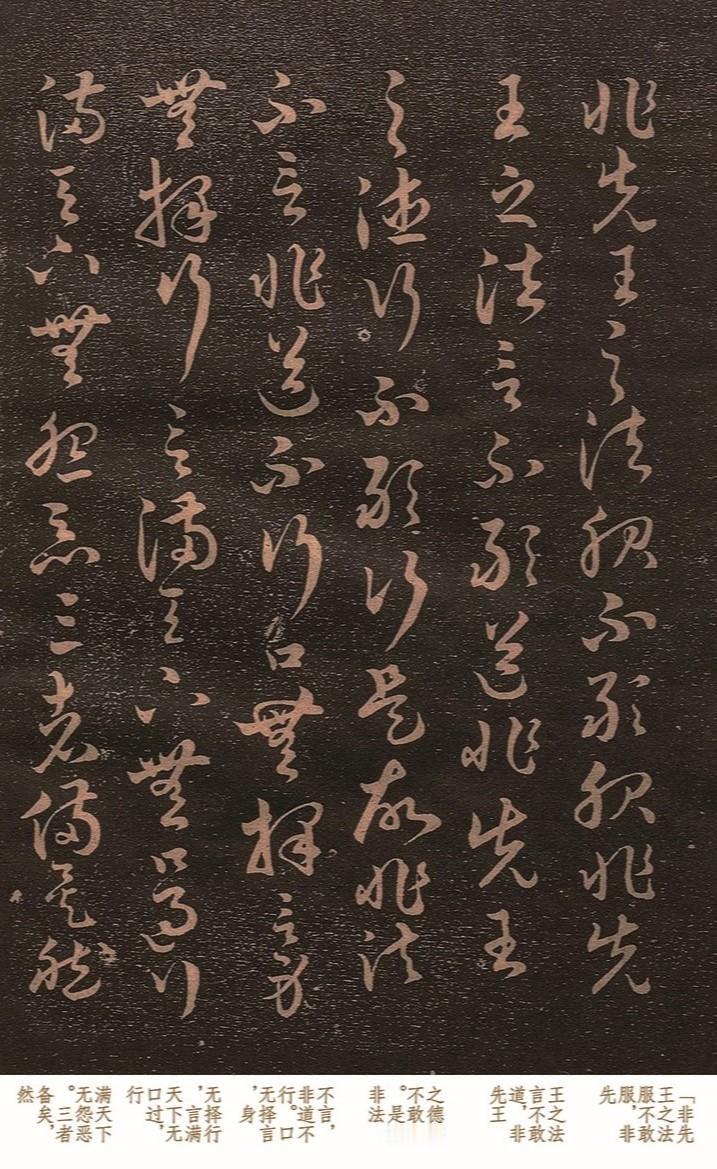 非先王之法服不敢服非先
王之法言不敢道非先王
之德行不敢行是故非法
不言非道不行口無擇言身
無擇行言滿天下無口過行
滿天下無怨惡三者備矣然
「非先
王之法
服不敢
服，非
先
王之法
言不敢
道，非
先王
之德
不敢
。是
非法
不言，
非道不
行。口
无择言
，身
无择行
，言满
天下无
口过，
行
满天下
无怨恶
。三者
备矣，
然